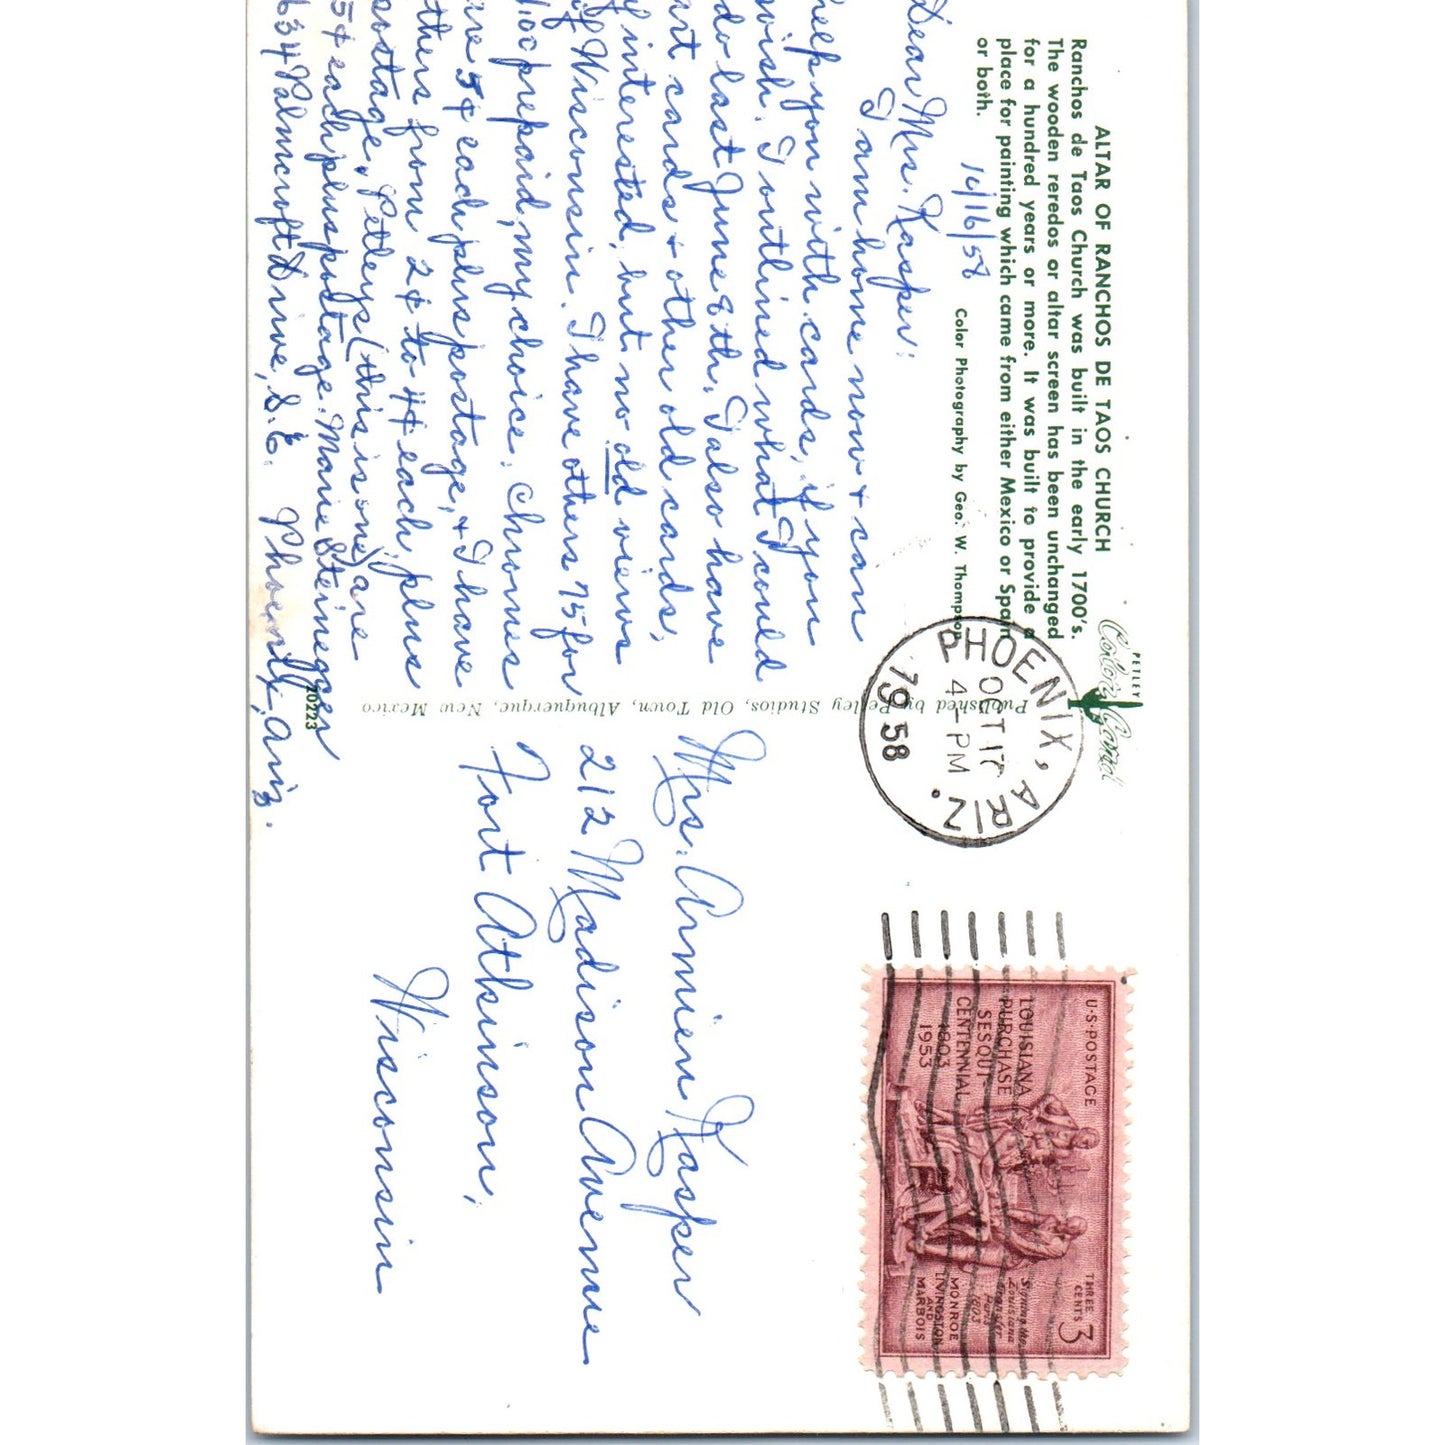 ALTAR OF RANCHOS DE TAOS CHURCH
Ranchos de Taos Church was built in the early 1700's.
The wooden reredos or altar screen has been unchanged
for a hundred years or more. It was built to provide a
place for painting which came from either Mexico or Spain
or both.
Color Photography by Geo. W. Thompson
10/16/58
Dear Mrs. Kasper:
I am home now + can
help you with cards, if you
wish. I outlined what I could
do last June 8th. I also have
art cards + other old cards,
if interested, but no old views
of Wisconsin. I have others 75 for
1.00 prepaid, my choice. Chromes
are 5¢ each plus postage, + I have
others from 2¢ to 4¢ each, plus
postage, Petleys (this is one) are
5¢ each plus postage. Marie Steinegger
634 Palmcroft Drive, S.E. Phoenix, Ariz.
10223
Published by Petley Studios, Old Town, Albuquerque, New Mexico
PETLEY
Color Card
PHOENIX, ARIZ.
OCT 17
4-PM
1958
U.S. POSTAGE
LOUISIANA
PURCHASE
SESQUI
CENTENNIAL
1803
1953
THREE
CENTS 3
Signing the
Louisiana
Transfer
Paris
1803
MONROE
LIVINGSTON
AND
MARBOIS
Mrs. Armien Kasper
212 Madison Avenue
Fort Atkinson,
Wisconsin